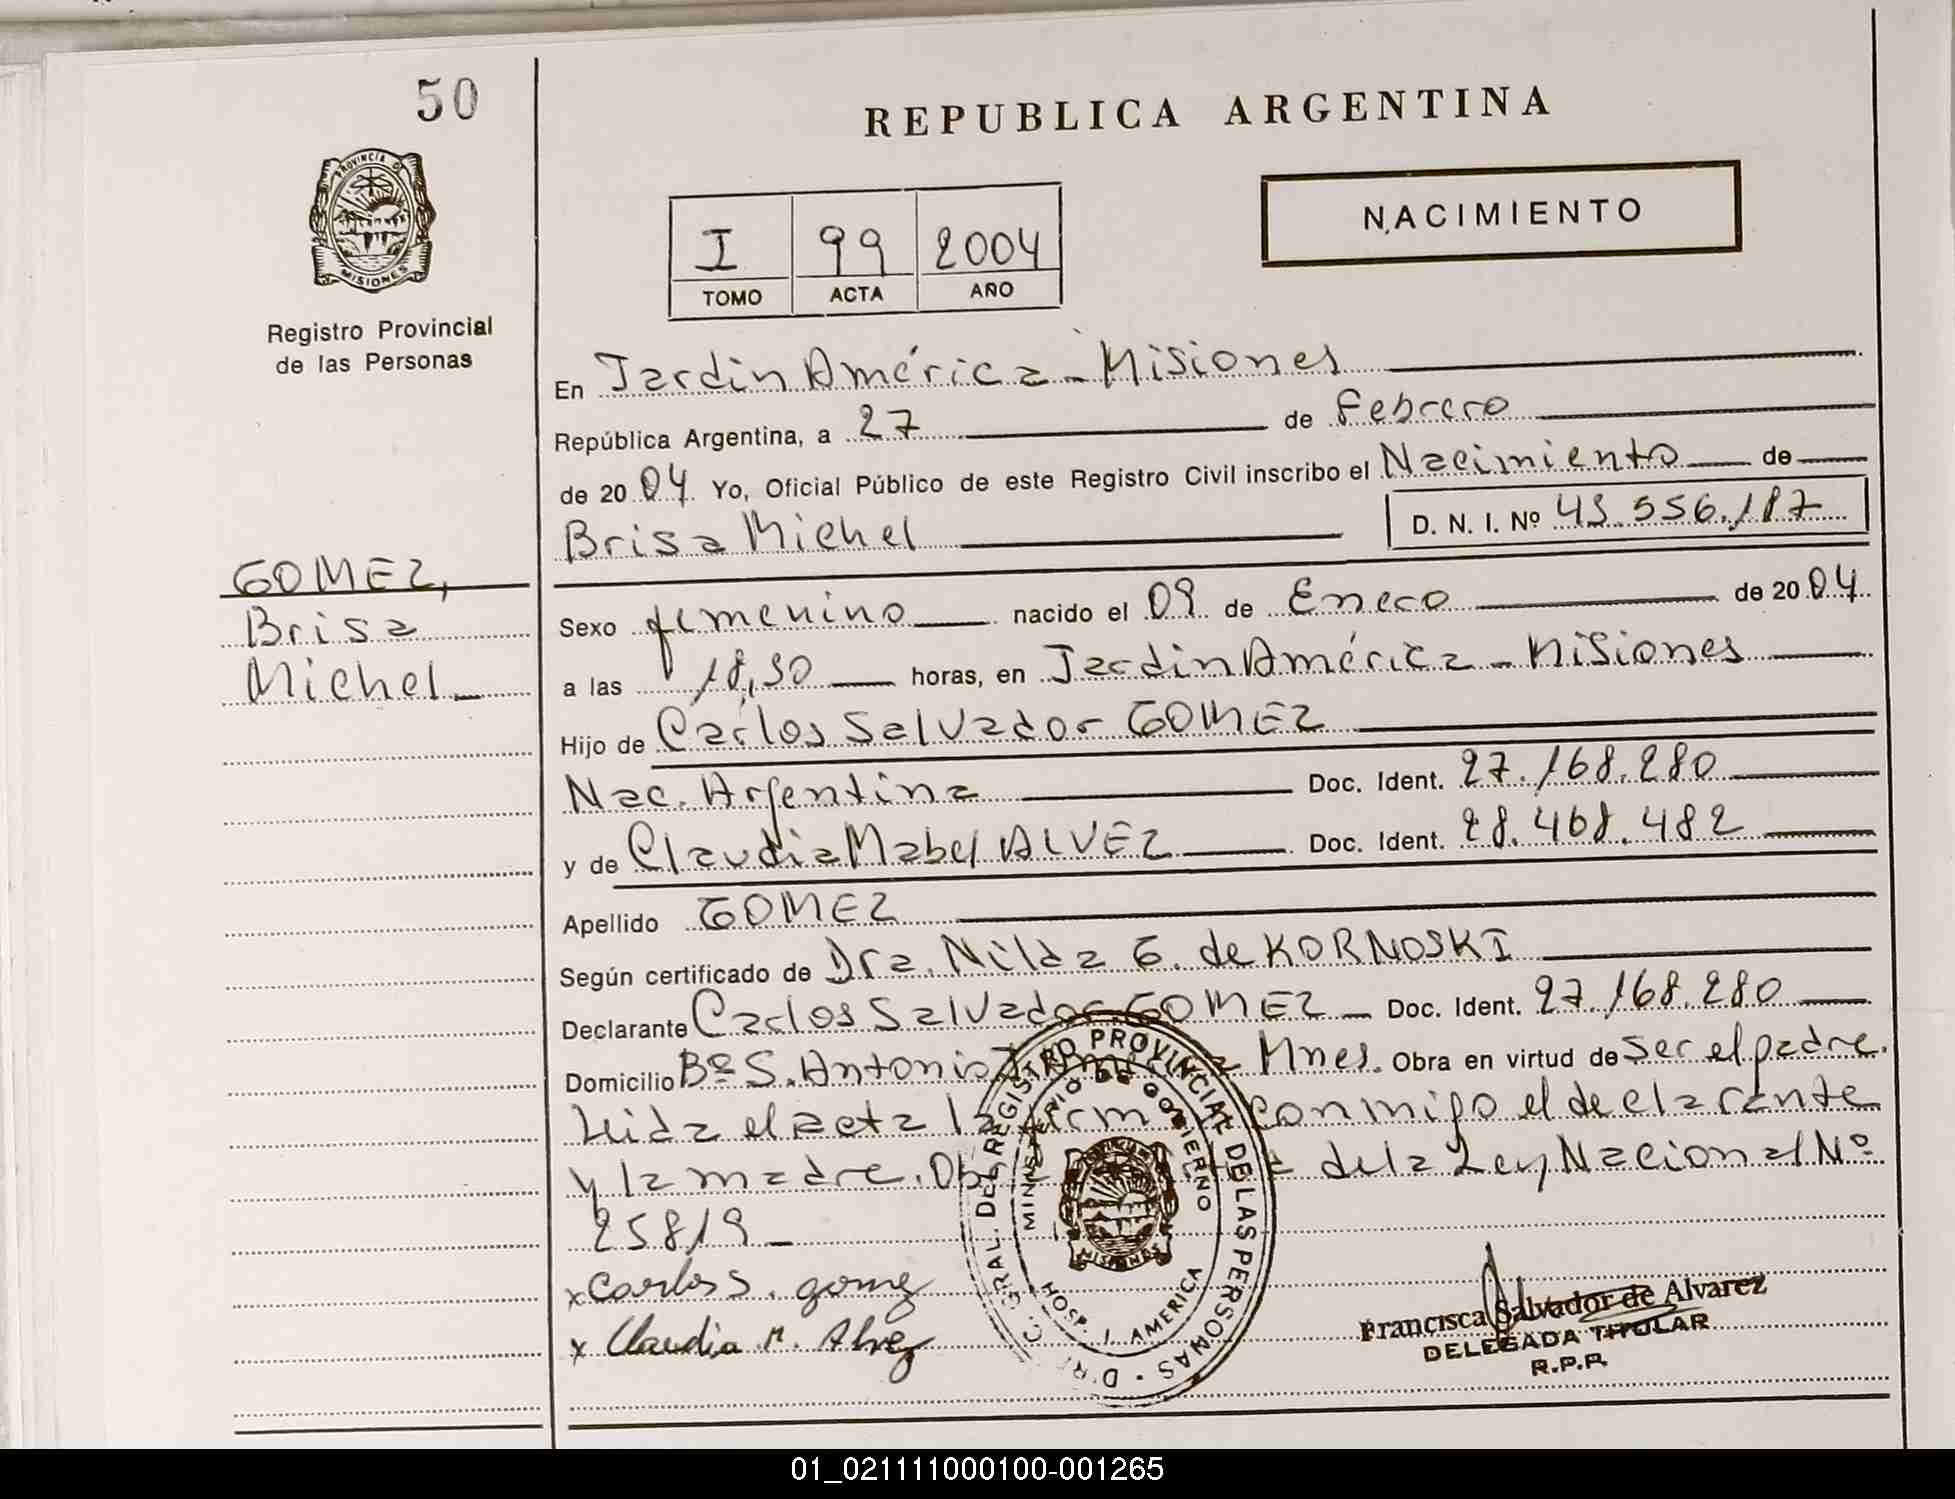 50
REPUBLICA ARGENTINA
NACIMIENTO
I 99 2004
TOMO ACTA AÑO
PROVINCIA DE
MISIONES
Registro Provincial
de las Personas
En Jardin América - Misiones
República Argentina, a 27 de Febrero
de 2004 Yo, Oficial Público de este Registro Civil inscribo el Nacimiento de
Brisa Michel
D. N. I. Nº 45.556.187
GOMEZ,
Brisa
Michel
Sexo femenino nacido el 09 de Enero de 2004
a las 18,30 horas, en Jardin América - Misiones
Hijo de Carlos Salvador GOMEZ
Nac. Argentina Doc. Ident. 27.168.280
y de Claudia Mabel ALVEZ Doc. Ident. 28.468.482
Apellido GOMEZ
Según certificado de Dra. Nilda G. de KORNOSKI
Declarante Carlos Salvador GOMEZ - Doc. Ident. 27.168.280
Domicilio Bº S. Antonio Mnes. Obra en virtud de ser el padre.
Leida el acta la conmigo el declarante
y la madre. de la Ley Nacional Nº
25819 -
x Carlos S. gomez
x Claudia M. Alvez
DEL REGISTRO PROVINCIAL DE LAS PERSONAS
MINISTERIO DE GOBIERNO
HOSP. J. AMERICA
MISIONES
Francisca Salvador de Alvarez
DELEGADA TITULAR
R.P.P.
01_021111000100-001265